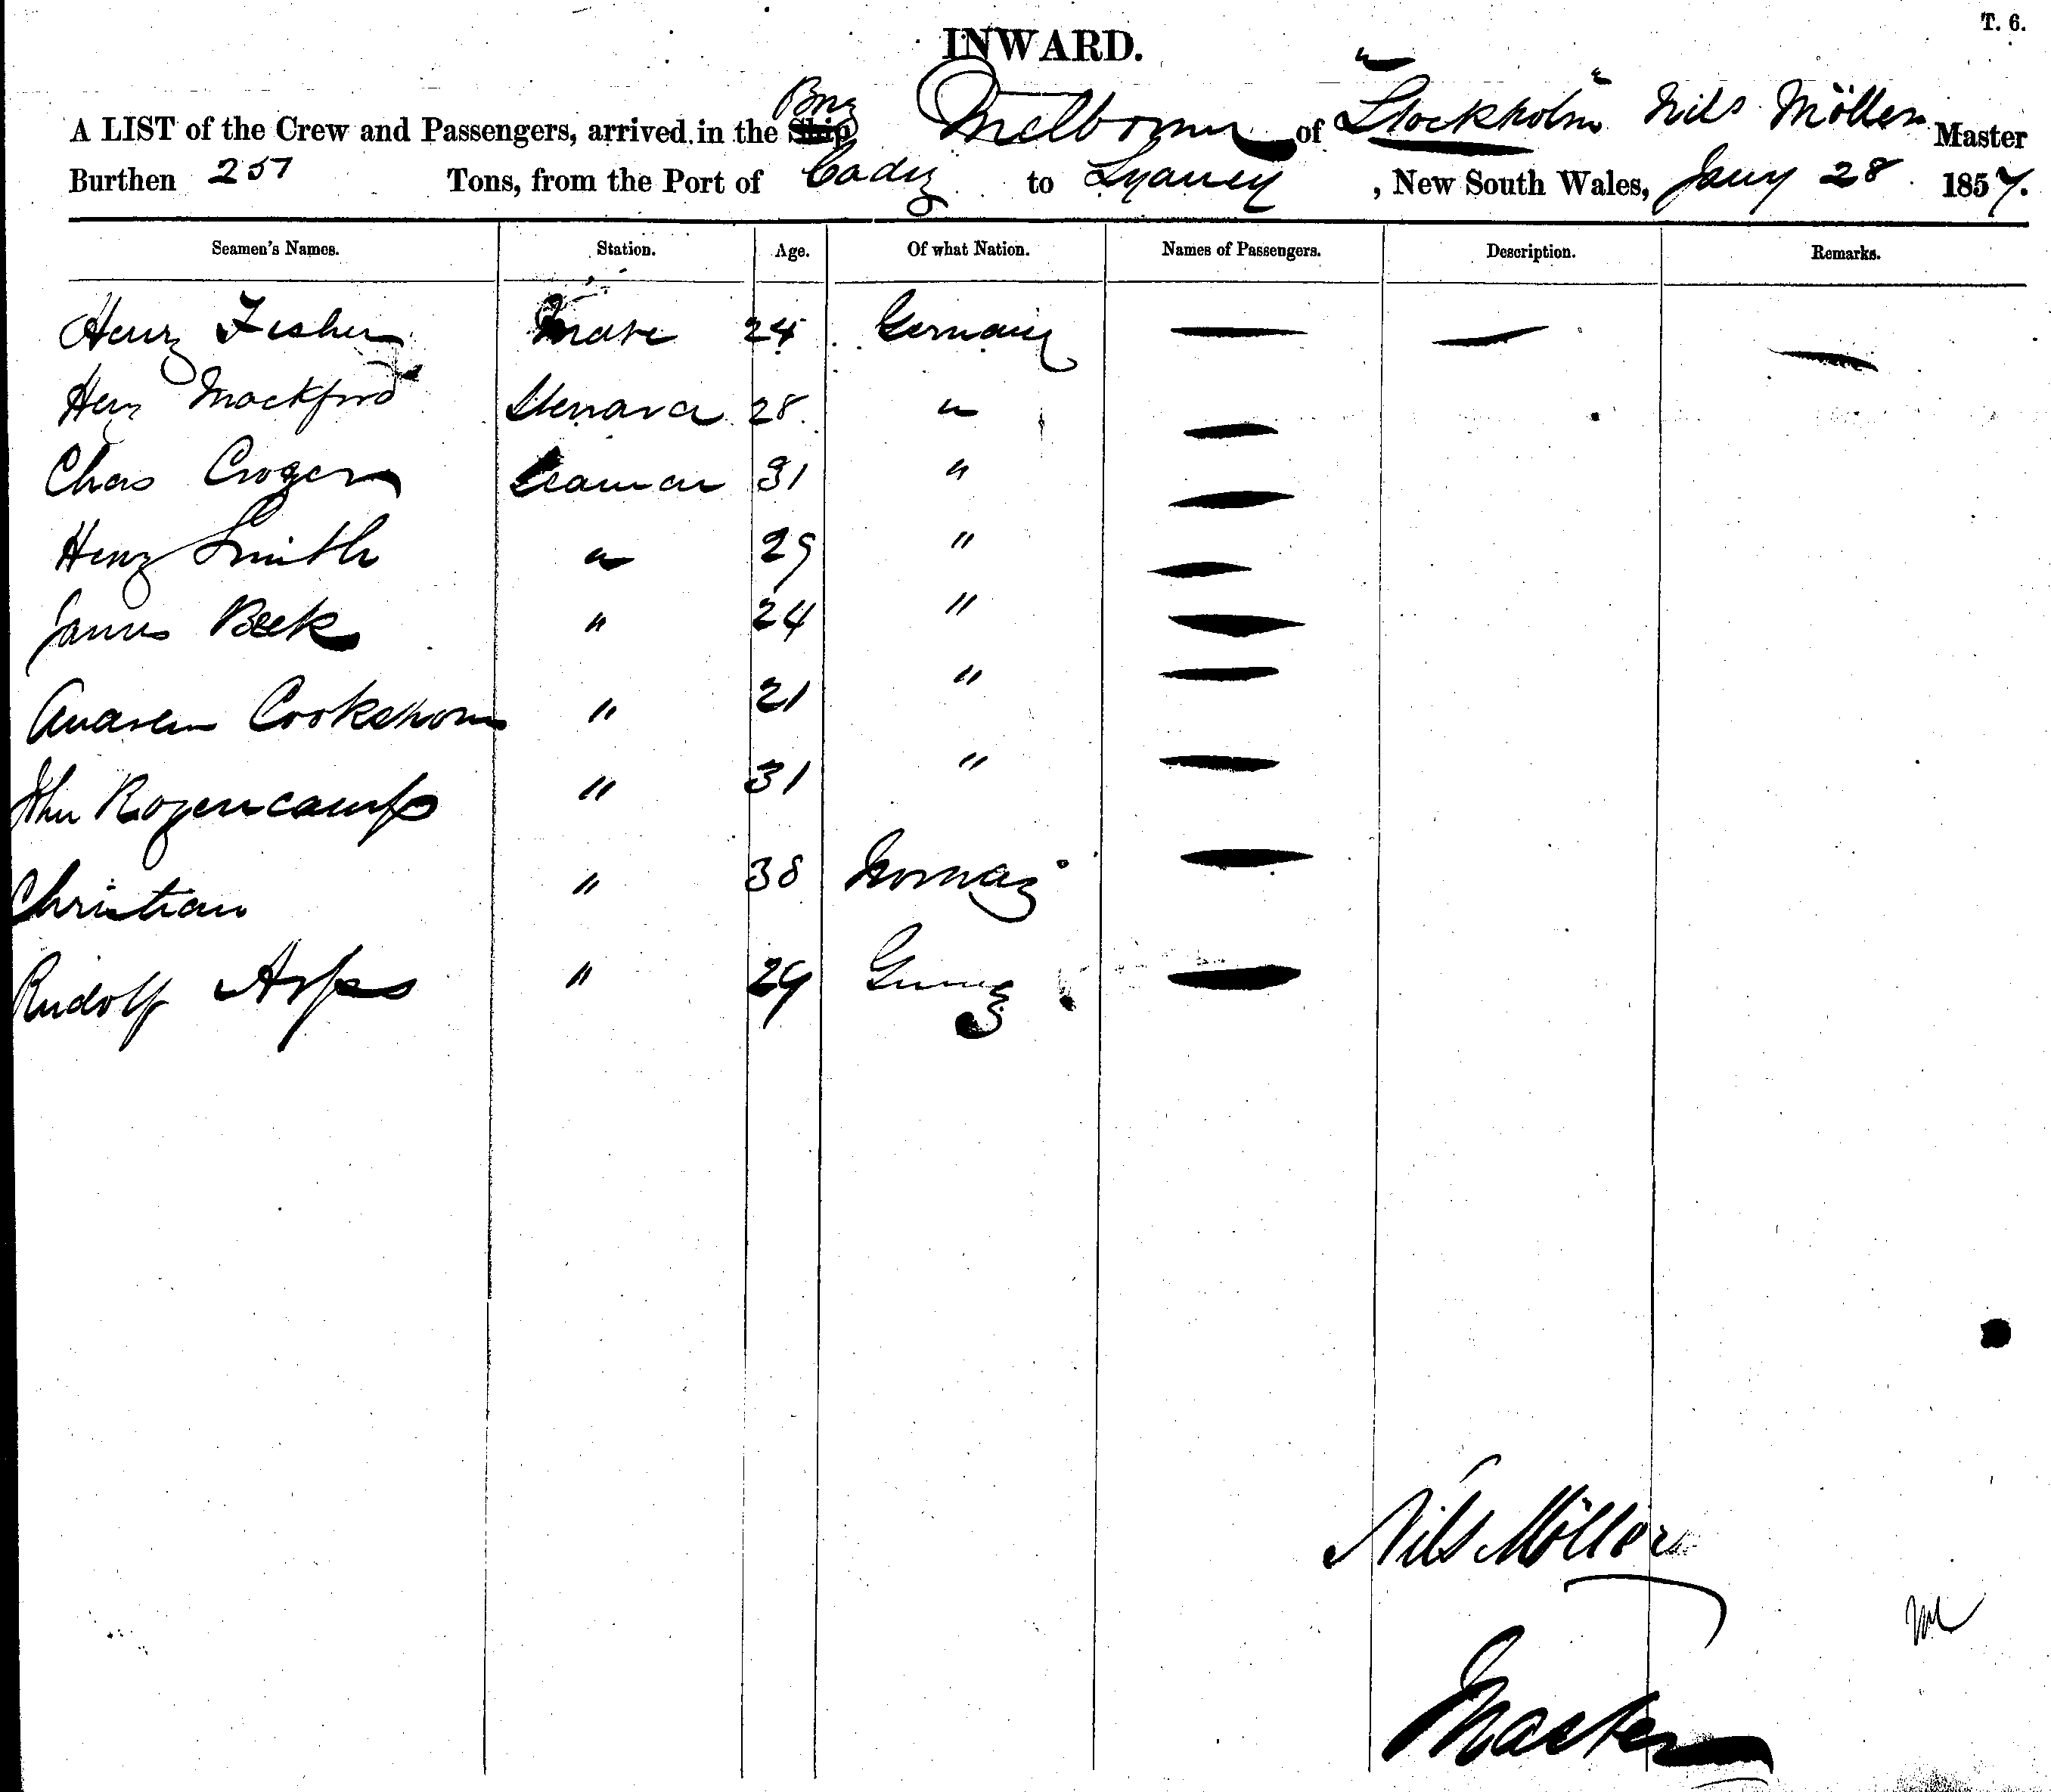 T. 6.
INWARD.
A LIST of the Crew and Passengers, arrived in the Ship Brig Melbourne of Stockholm Nils Möller Master
Burthen 257 Tons, from the Port of Cadiz to Sydney, New South Wales, Jany 28 1857.
Seamen's Names. Station. Age. Of what Nation. Names of Passengers. Description. Remarks.
Henry Fisher Mate 24 Germany
Heny Mockford Steward 28 "
Chas Croger Seaman 31 "
Heny Smith " 29 "
James Beek " 24 "
Andrew " 21 "
John Rogencamp " 31 "
Christian " 38 Norway
Rudolf Arps " 29 Germy
Nils Möller
Master